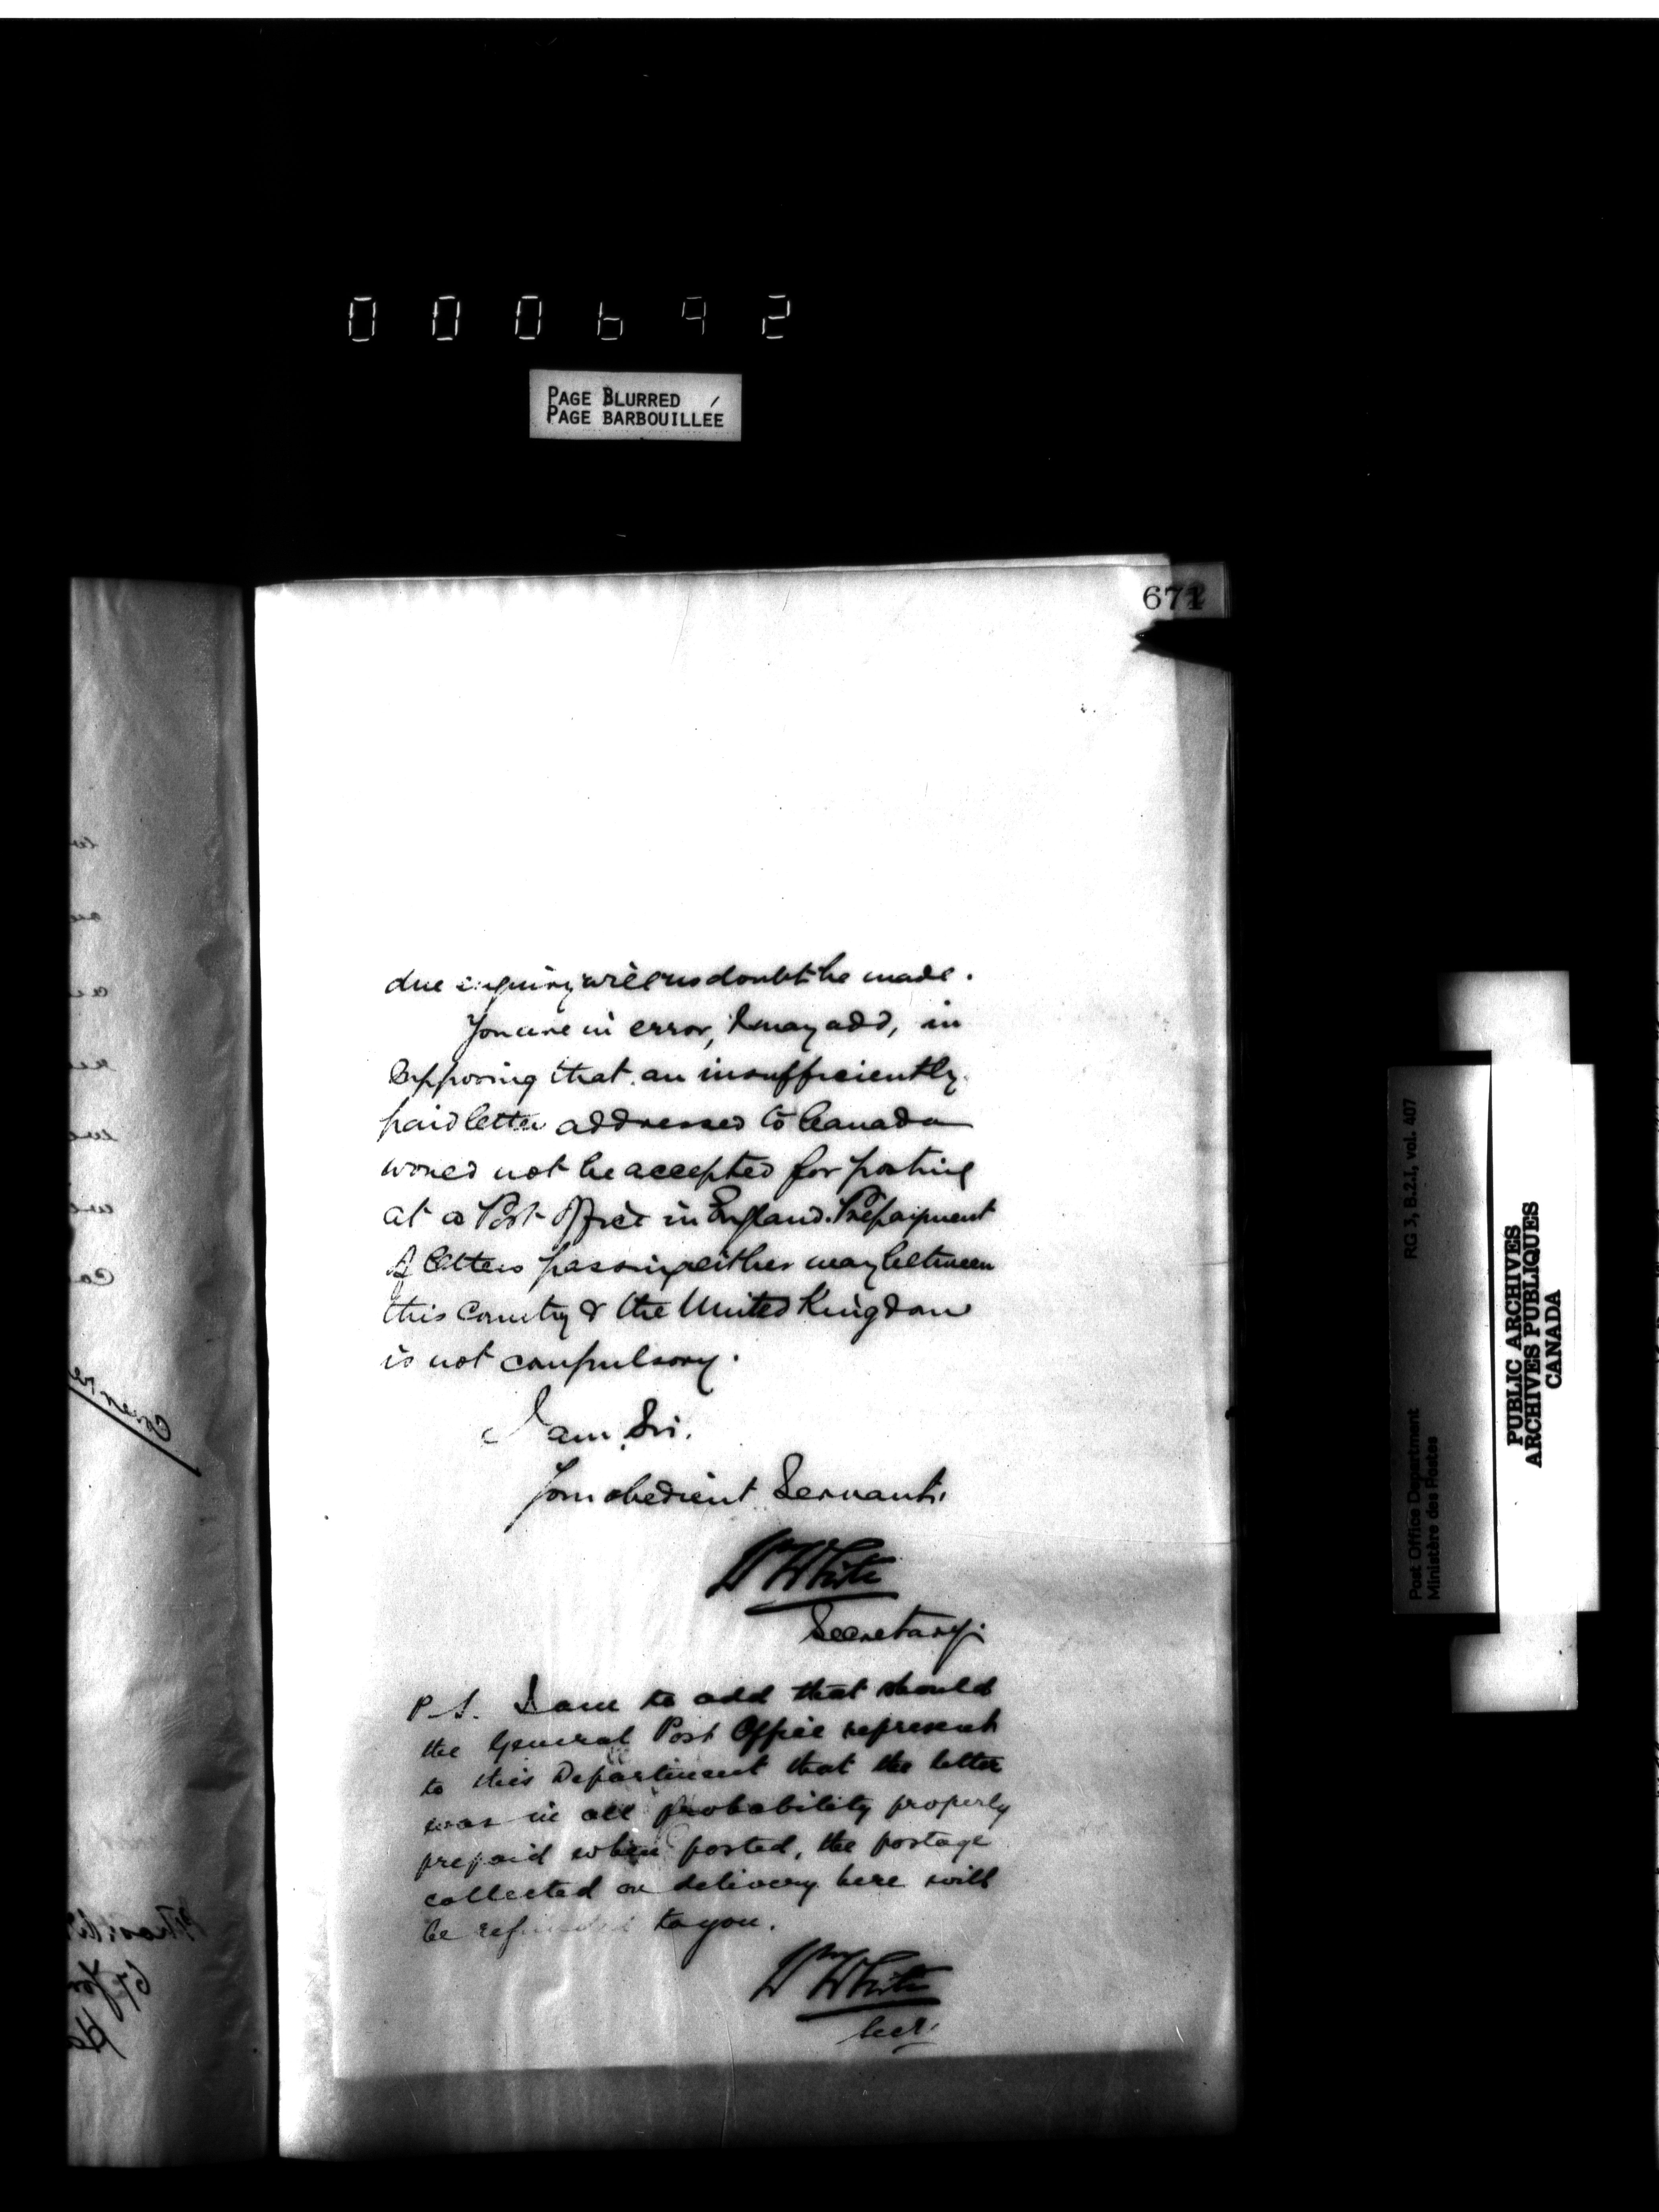 000692
PAGE BLURRED
PAGE BARBOUILLÉE
671
due inquiry will no doubt be made.
You are in error, I may add, in
supposing that an insufficiently
paid letter addressed to Canada
would not be accepted for posting
at a Post Office in England. Prepayment
of letters passing either way between
this Country & the United Kingdom
is not compulsory.
I am, Sir,
Your obedient Servant,
Wm White
Secretary.
P.S. I am to add that should
the General Post Office represent
to this Department that the letter
was in all probability properly
prepaid when posted, the postage
collected on delivery here will
be refunded to you.
Wm White
Secy.
RG 3, B.2.I, vol. 407
Post Office Department
Ministère des Postes
PUBLIC ARCHIVES
ARCHIVES PUBLIQUES
CANADA